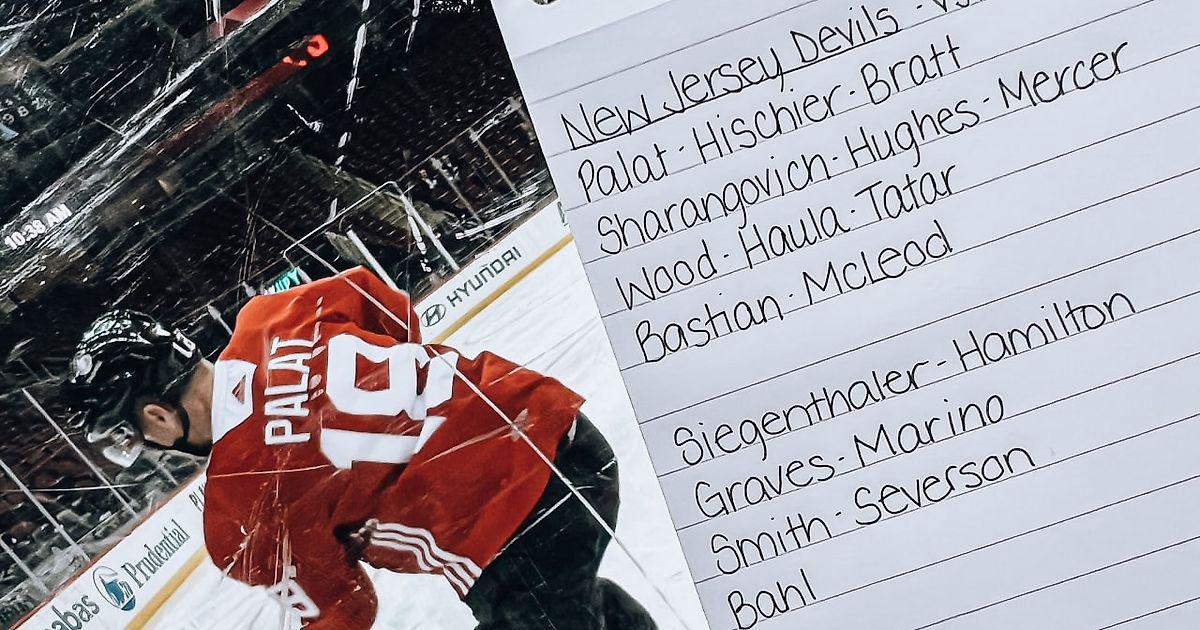 New Jersey Devils -
Palat - Hischier - Bratt
Sharangovich - Hughes - Mercer
Wood - Haula - Tatar
Bastian - McLeod
Siegenthaler - Hamilton
Graves - Marino
Smith - Severson
Bahl
10:38 AM
HYUNDAI
PALAT
18
Prudential